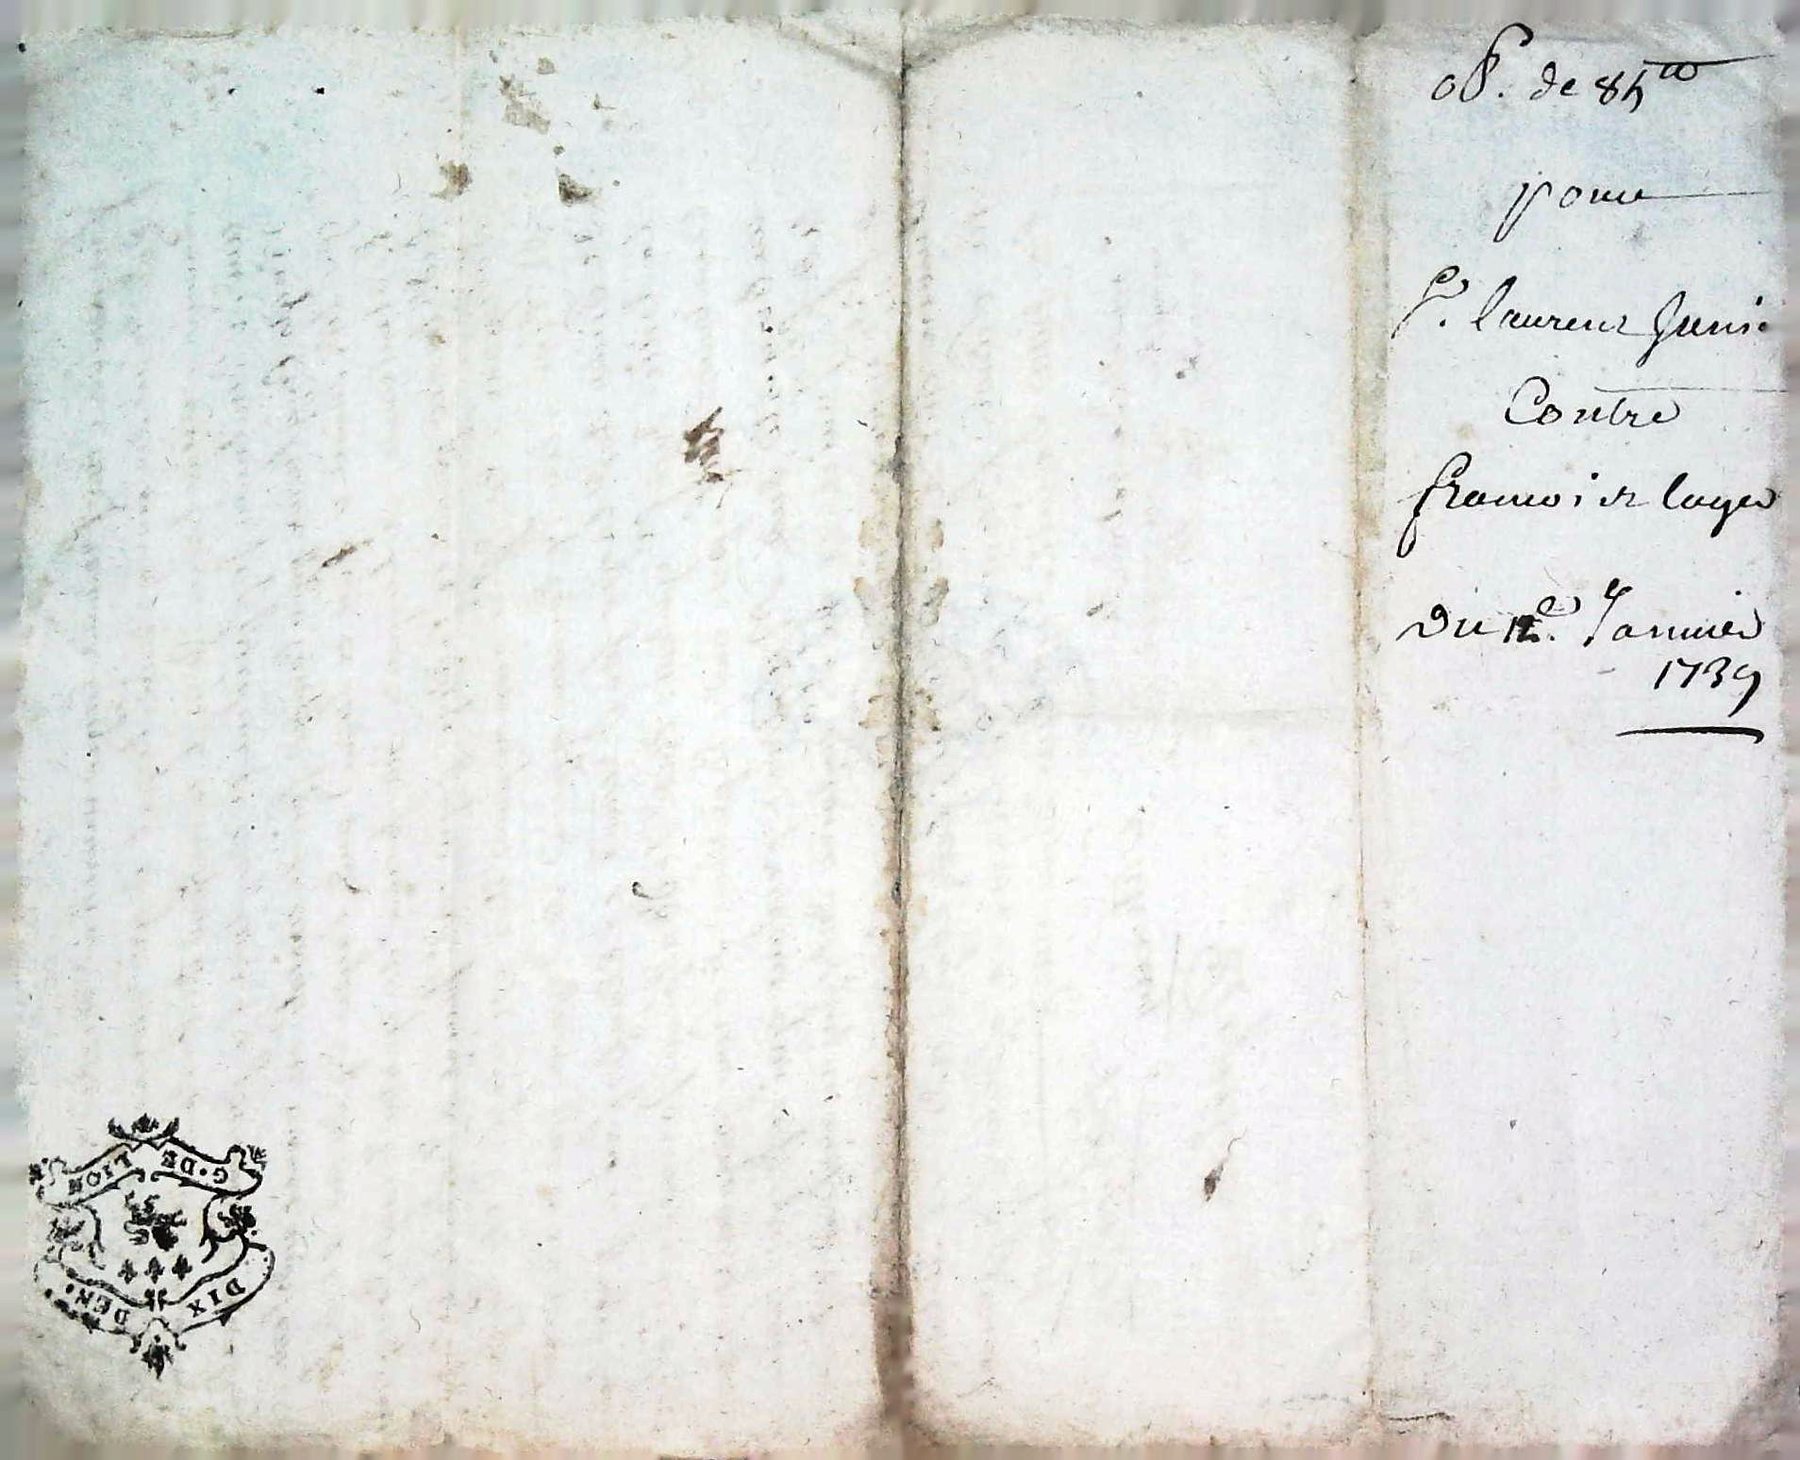 ob. de 84tt
pour
Sr. laurent Junie
Contre
francois lager
Du 12e. Janvier
1739
G. DE LION
DIX DEN.